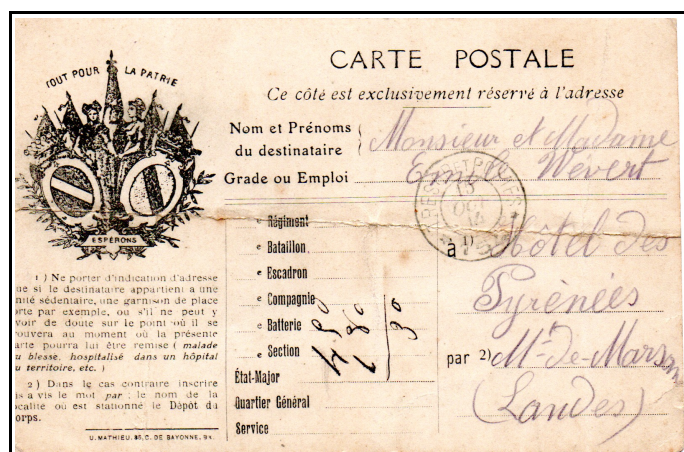 TOUT POUR LA PATRIE
ESPÉRONS
CARTE POSTALE
Ce côté est exclusivement réservé à l'adresse
Nom et Prénoms du destinataire
Monsieur et Madame
Grade ou Emploi
Emile Wévert
e Régiment
e Bataillon
à 1)
Hôtel des
e Escadron
e Compagnie
Pyrénées
e Batterie
e Section
par 2)
Mt-de-Marsan
État-Major
Quartier Général
(Landes)
Service
30
1) Ne porter d'indication d'adresse
ue si le destinataire appartient a une
nité sédentaire, une garnison de place
orte par exemple, ou s'il ne peut y
voir de doute sur le point où il se
rouvera au moment où la présente
arte pourra lui être remise ( malade
u blesse, hospitalisé dans un hôpital
u territoire, etc. )
2) Dans le cas contraire inscrire
is a vis le mot par : le nom de la
ocalité où est stationné le Dépôt du
orps.
U. MATHIEU, 85, C. DE BAYONNE, Bx.